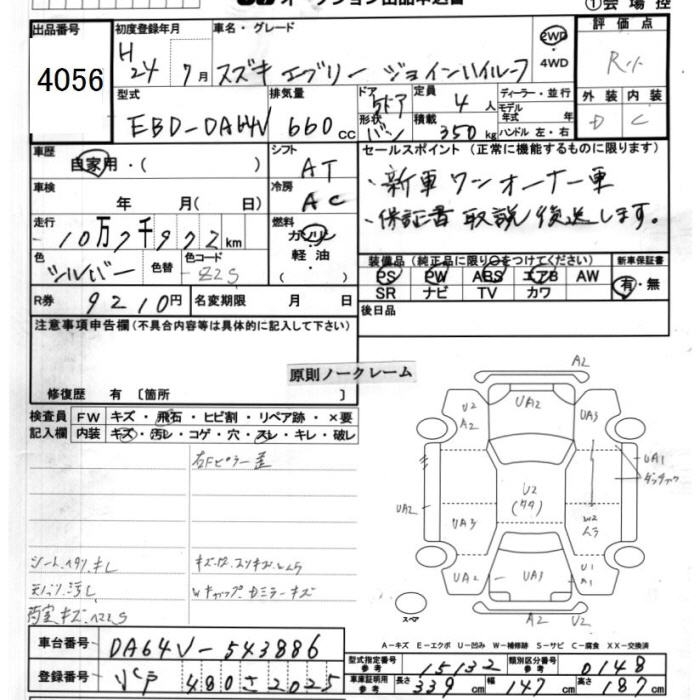 ①会場控
出品番号
4056
初度登録年月
H24 7月
車名・グレード
スズキ エブリー ジョインハイルーフ
2WD・4WD
評価点
R
型式
EBD-DA64V
排気量
660cc
ドア形状
5ドア バン
定員
4人
積載
350kg
ディーラー・並行
モデル年式 年
ハンドル 左・右
外装
D
内装
C
車歴
自家用・( )
シフト
AT
セールスポイント(正常に機能するものに限ります)
・新車ワンオーナー車
・保証書取説後送します。
車検
年 月( 日)
冷房
AC
走行
10万7千972km
燃料
ガソリン
軽油
( )
色
シルバー
色替
色コード
Z2S
装備品(純正品に限り○をつけてください)
PS PW ABS エアB AW
SR ナビ TV カワ
新車保証書
有・無
R券
9210円
名変期限 月 日
後日品
注意事項申告欄(不具合内容等は具体的に記入して下さい)
原則ノークレーム
修復歴 有〔箇所 〕
検査員記入欄
FW キズ・飛石・ヒビ割・リペア跡・×要
内装 キズ・汚レ・コゲ・穴・スレ・キレ・破レ
右Fピラー歪
A2
U2
A2
UA2
UA3
UA1
UA2
U2
(タタ)
W2
ムラ
UA3
UA2
UA3
U1
A1
スペア
A2 U2
A-キズ E-エクボ U-凹み W-補修跡 S-サビ C-腐食 XX-交換済
車台番号
DA64V-543886
型式指定番号 参考
15132
類別区分番号 参考
0148
登録番号
480 さ 2025
車庫証明用 参考
長さ 339cm
幅 147cm
高さ 187cm